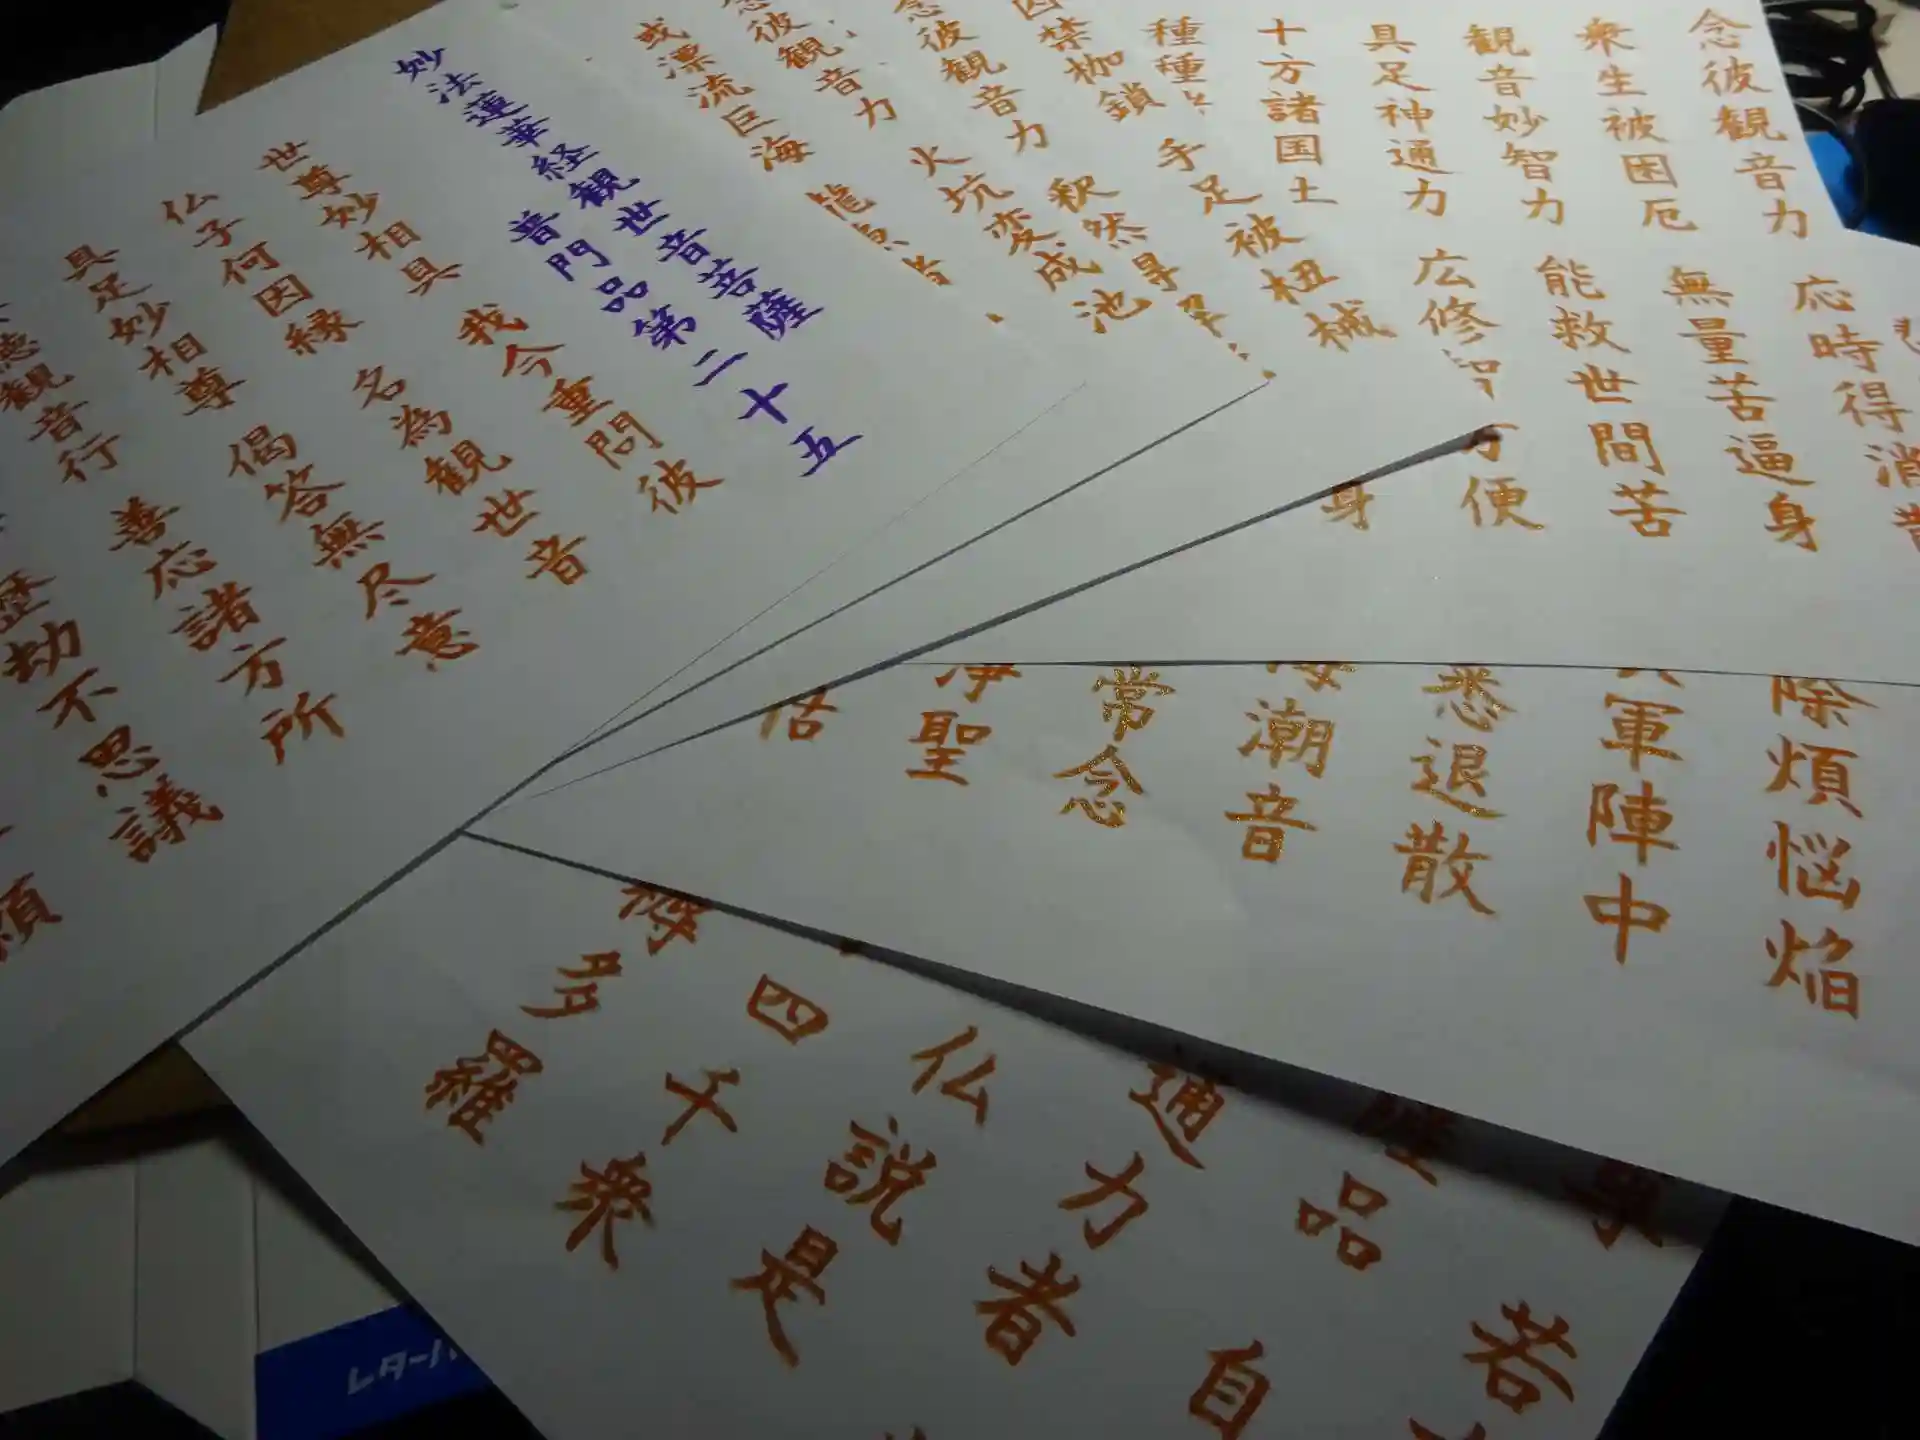 妙法蓮華経観世音菩薩
普門品第二十五
世尊妙相具 我今重問彼
仏子何因縁 名為観世音
具足妙相尊 偈答無尽意
観音行 善応諸方所
歴劫不思議
或漂流巨海 龍魚
彼観音力
念彼観音力 火坑変成池
囚禁枷鎖 手足被杻械
念彼観音力 釈然
種種
十方諸国土 身
具足神通力 広修智方便
観音妙智力 能救世間苦
衆生被困厄 無量苦逼身
念彼観音力 応時得消散
除煩悩焔
軍陣中
悉退散
海潮音
常念
浄聖
若
品 自
通力者
仏説是
四千衆
多羅
レターパ